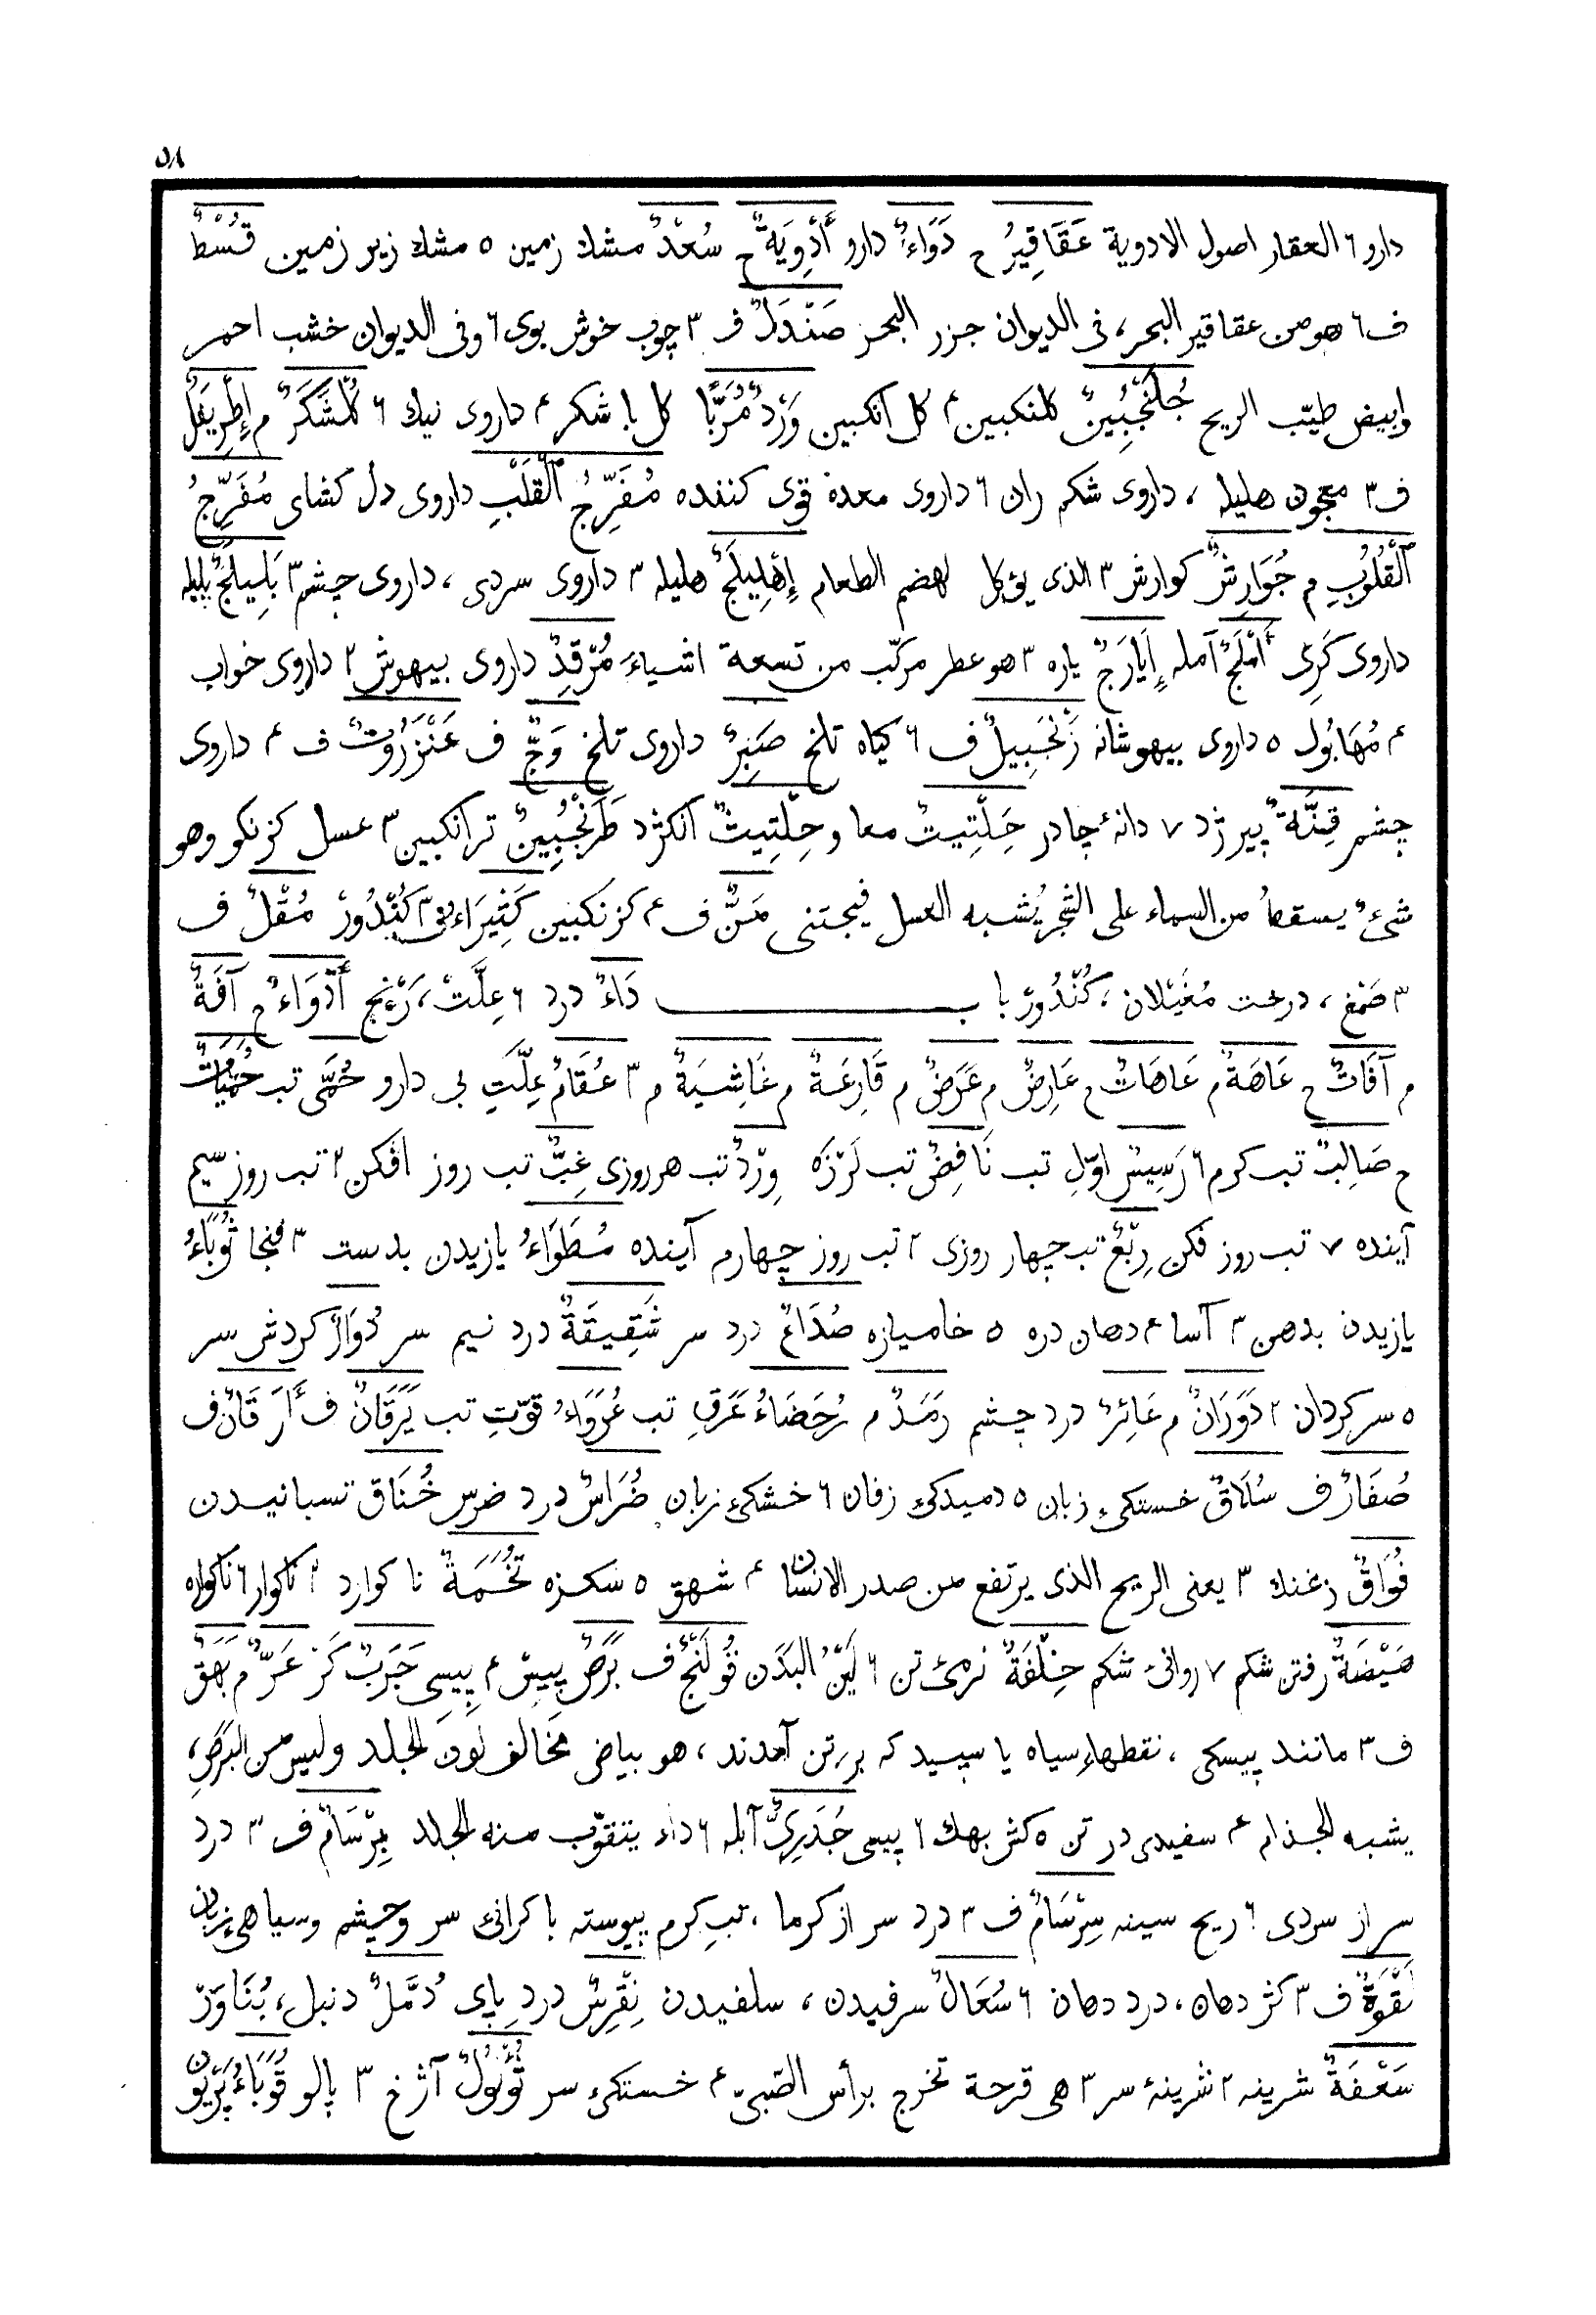 ٥٨
دارو ٦ العقار اصول الادوية عَقَاقِيرُ ح دَوَاءٌ دارو أَدْوِيَةٌ ح سُعْدٌ مشك زمين ٥ مشك زير زمين قُسْطٌ
ف ٦ هو من عقاقير البحر، فى الديوان جزر البحر صَنْدَلٌ ف ٣ چوب خوش بوى ٦ وفى الديوان خشب احمر
وابيض طيّب الريح جُلَنْجُبِينٌ كلنكبين ٤ كل انكبين وَرْدٌ مُرَبًّا كل با شكر ٤ داروى نيك ٦ كُلْشَكَرٌ م إِطْرِيفَلٌ
ف ٣ معجون هليله ، داروى شكم ران ٦ داروى معده قوى كننده مُفَرِّجُ ٱلْقَلْبِ داروى دل كشاى مُفَرِّجُ
ٱلْقُلُوبِ م جُوَارِشٌ كوارش ٣ الذى يؤكل لهضم الطعام إِهْلِيلَجٌ هليله ٣ داروى سردى ، داروى چشم ٣ بَلِيلَجٌ بليله
داروى كَرِى أَمْلَجٌ آمله إِيَارَجٌ ياره ٣ هو عطر مركّب من تسعة اشياءَ مُرْقِدٌ داروى بيهوش ٢ داروى خواب
٤ مُهَابُول ٥ داروى بيهوشانه زَنْجَبِيلٌ ف ٦ كياه تلخ صَبِرٌ داروى تلخ وَجٌّ ف عَنْزَرُوتٌ ف ٤ داروى
چشم قِنَّةٌ پيرژد ٧ دانهٔ چادر حِلْتِيتٌ معا وحِلْتِيثٌ انكژد طَرَنْجُبِينٌ ترانكبين ٣ عسل كزنكو وهو
شىءٌ يسقط من السماء على الشجر يُشبه العسل فيجتنى مَنٌّ ف ٤ كزنكبين كَثِيرَاءُ ف ٣ كُنْدُورْ مُقْلٌ ف
٣ صَمْغ ، درخت مُغَيْلان ، كُنْدُورْ باب دَاءٌ درد ٦ عِلَّتْ، رَنج أَدْوَاءٌ ح آفَةٌ
م آفَاتٌ ح عَاهَةٌ م عَاهَاتٌ ح عَارِضٌ م عَرَضٌ م قَارِعَةٌ م غَاشِيَةٌ م ٣ عُقَامٌ عِلّتِ بى دارو حُمَّى تب حُمَّيَاتٌ
ح صَالِبٌ تب كرم ٦ رَسِيسٌ اوّلِ تب نَافِضٌ تب لَرْزَه وِرْدٌ تب هر روزى غِبٌّ تب روز افكن ٢ تب روز سيم
آينده ٧ تب روز فكن رِبْعٌ تب چهار روزى ٢ تب روز چهارم آينده مُطَوَاءُ يازيدن بدست ٣ فنجا ثُوَبَاءُ
يازيدن بدهن ٣ آسا ٤ دهان دره ٥ خاميازه صُدَاعٌ درد سر شَقِيقَةٌ درد نيم سر دُوَارٌ كردش سر
٥ سركردان ٢ دَوَرَانٌ م عَائِرٌ درد چشم رَمَدٌ م رُحَضَاءُ عَرَقِ تب عُرَوَاءُ قوّتِ تب يَرَقَانٌ ف أَرَقَانٌ ف
صُفَارٌ ف سُلَاقٌ خستكىء زبان ٥ دميدكىء زفان ٦ خشكىء زبان ضُرَاسٌ درد ضرس خُنَاق تسبانيدن
فُوَاقٌ زغنك ٣ يعنى الريح الذى يرتفع من صدر الانسان ٤ شهق ٥ سكزه تُخَمَةٌ نا كوارد ٢ ناكوار ٦ ناكواره
هَيْضَةٌ رفتن شكم ٧ روانىء شكم خِلْفَةٌ نرمىء تن ٦ لَيِّنُ البَدَن قُولَنْجٌ ف بَرَصٌ پيس ٤ پيسى جَرَبٌ كَرْ عَرٌّ م بَهَقٌ
ف ٣ مانند پيسكى ، نقطهاءِ سياه يا سپيد كه بر تن آمدند ، هو بياض مخالف لون الجلد وليس من البَرَصِ،
يشبه الجذام ٤ سفيدى در تن ٥ كش بهك ٦ پيسى جُدَرِيٌّ آبله ٦ داء يتقوّب منه الجلد بِرْسَامٌ ف ٣ درد
سر از سردى ٦ ريح سينه سِرْسَامٌ ف ٣ درد سر از كرما ، تبِ كرم پيوسته با كرانىء سر وچشم وسياهىءِ زبان
لَقْوَةٌ ف ٣ كژ دهان، درد دهان ٦ سُعَالٌ سرفيدن ، سلفيدن نِقْرِسٌ درد پاى دُمَّلٌ دنبل، بُنَاوَرْ
سَعْفَةٌ شرينه ٢ شرينهٔ سر ٣ هى قرحة تخرج برأس الصّبىّ ٤ خستكىء سر ثُؤْلُولٌ آژخ ٣ پالو قُوَبَاءُ بَرْيُون